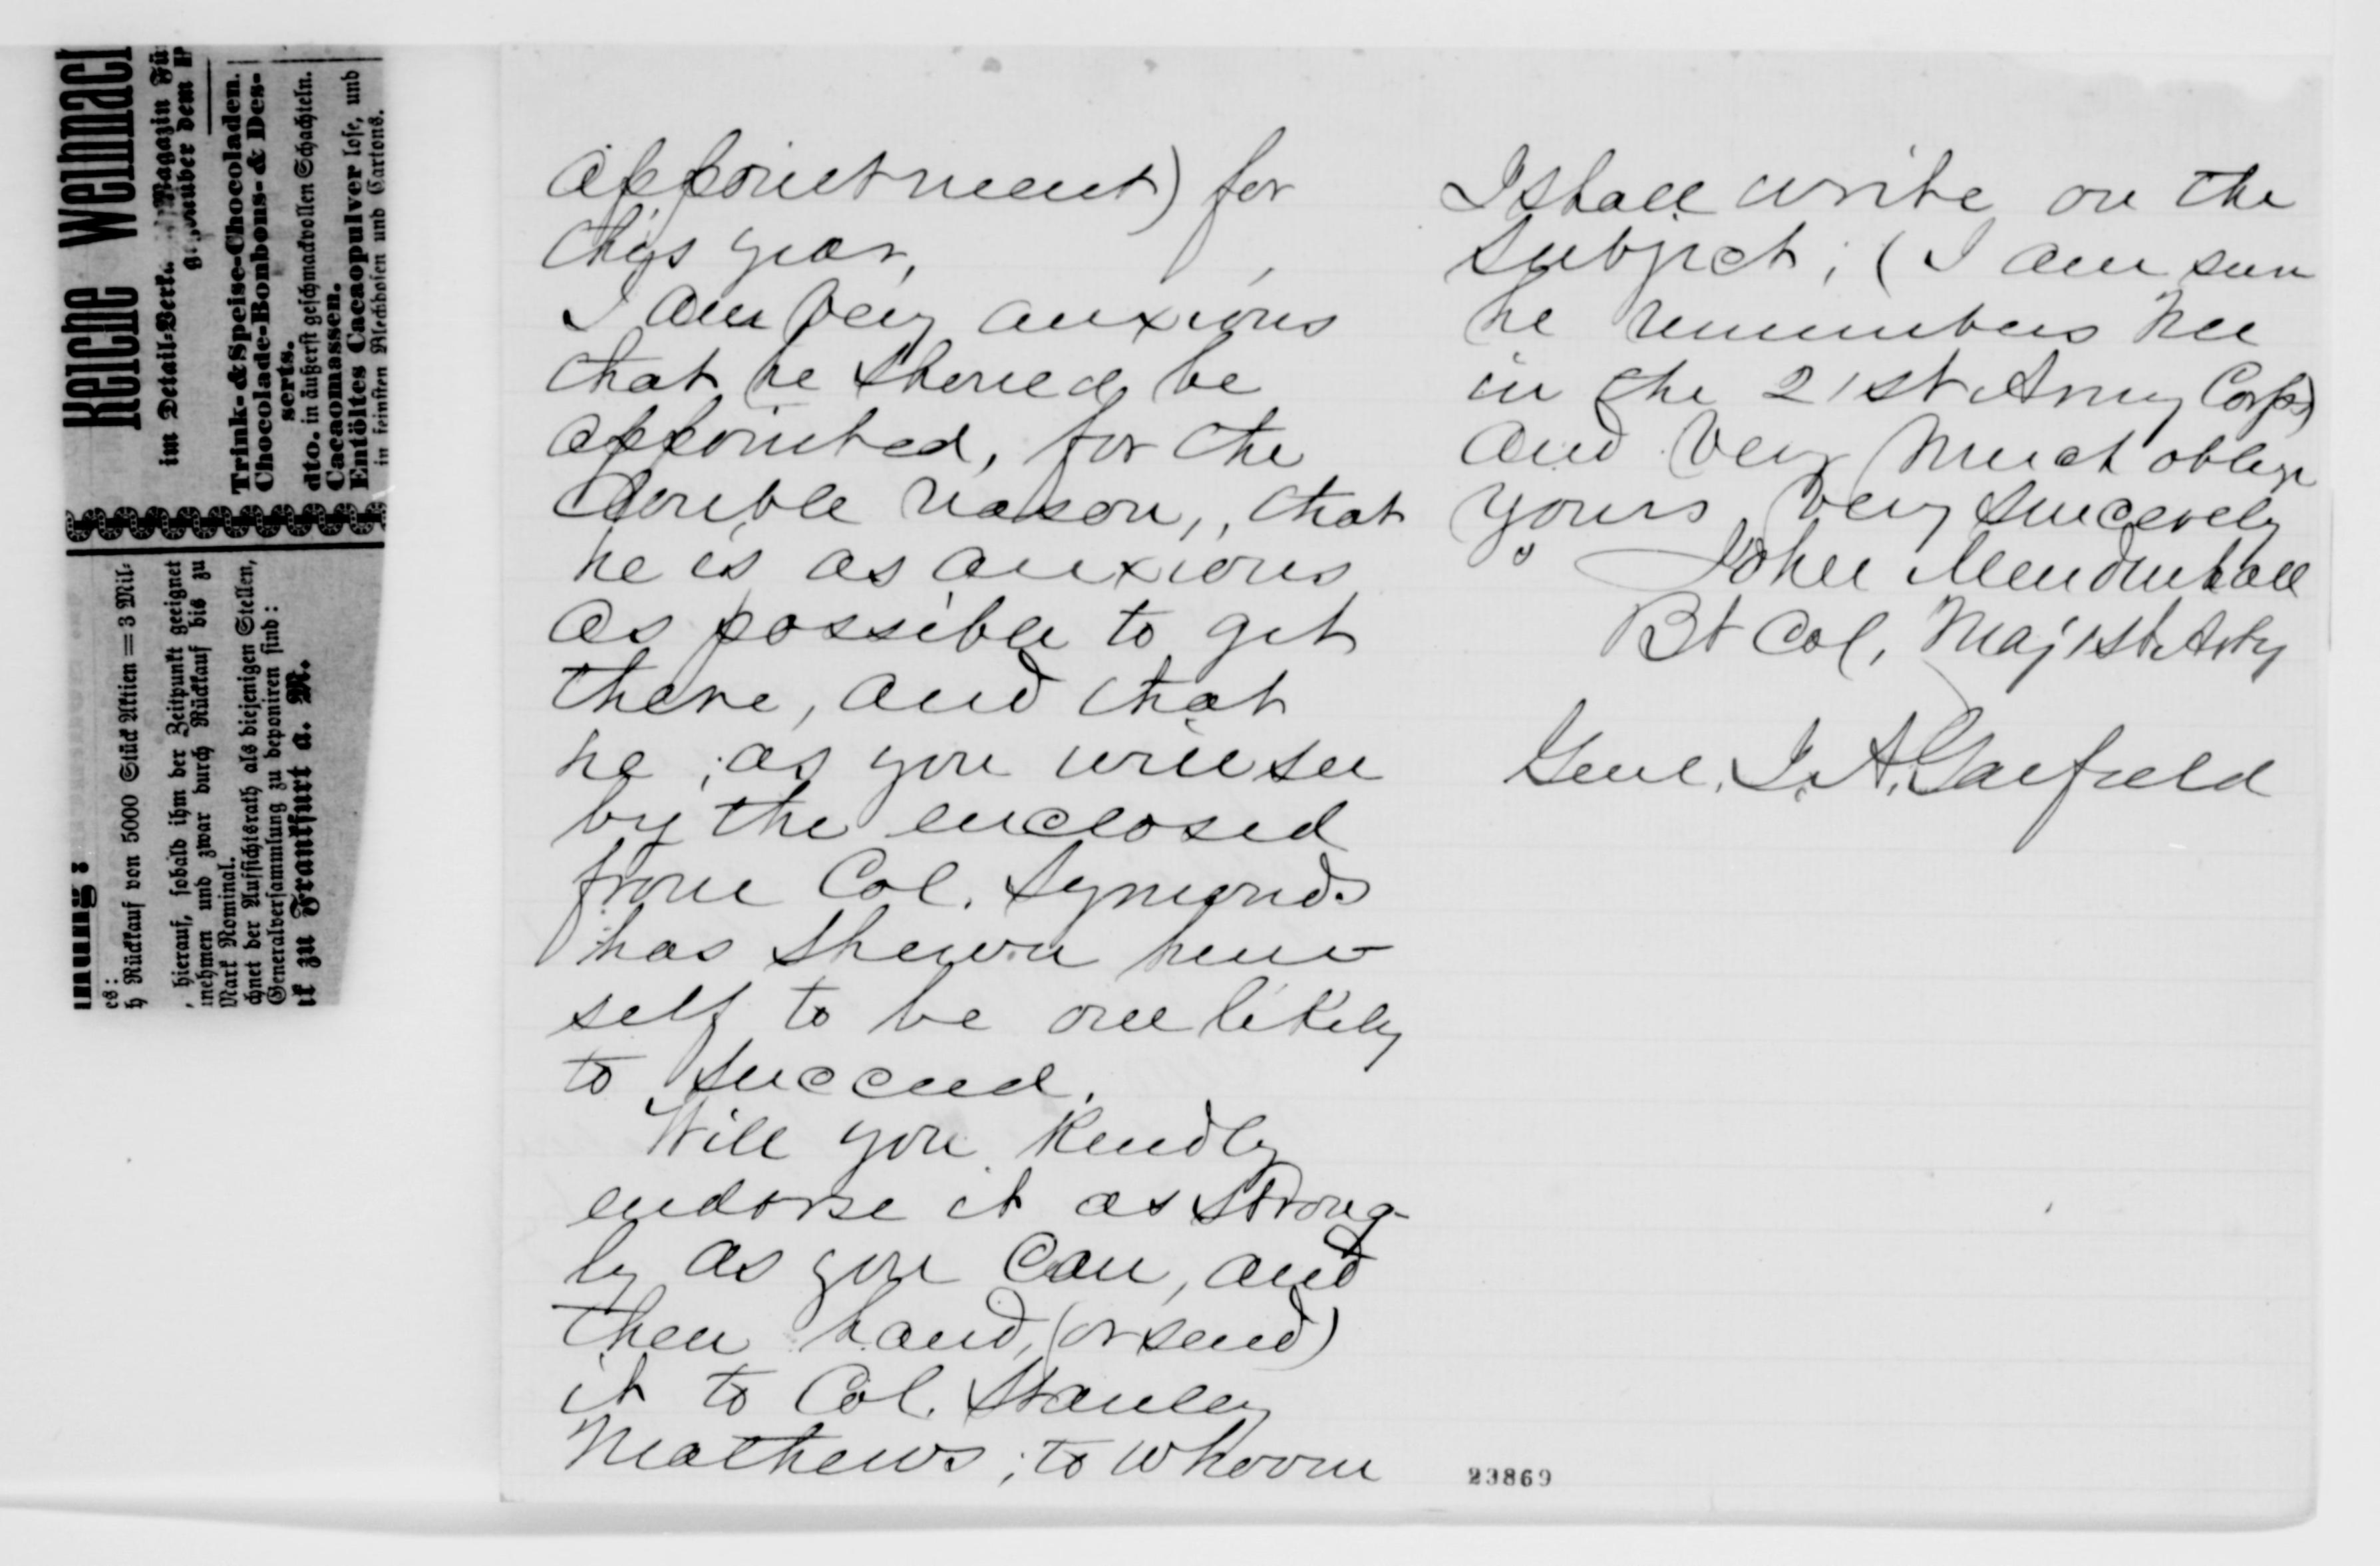 Reiche Weihnach
im Detail-Verk Magazin Fü
gegenüber dem
Trink- & Speise-Chocoladen.
Chocolade-Bonbons- & Des-
serts.
dto. in äußerst geschmackvollen Schachteln.
Cacaomassen.
Entöltes Cacaopulver lose, und
in feinsten Blechdosen und Cartons.
nnung
es:
h Rückkauf von 5000 Stück Aktien = 3 Mil-
, hierauf, sobald ihm der Zeitpunkt geeignet
mehmen und zwar durch Rückkauf bis zu
Mark Nominal.
chnet der Aufsichtsrath als diejenigen Stellen,
Generalversammlung zu deponiren sind:
zu Frankfurt a. M.
appointment) for
this year,
I am very anxious
that he should be
appointed, for the
double reason, that
he is as anxious
as possible to get
there, and that
he, as you will see
by the enclosed
from Col. Symonds
has shewn him-
self to be one likely
to succeed.
Will you kindly
endorse it as strong-
ly as you can, and
then hand, (or send)
it to Col. Stanley
Mathews; to whoom
I shall write on the
subject; (I am sure
he remembers me
in the 21st Army Corps)
and very much oblige
yours very sincerely
John Mendenhall
Bt Col, Maj 1st Arty
Genl. J. A. Garfield
23869